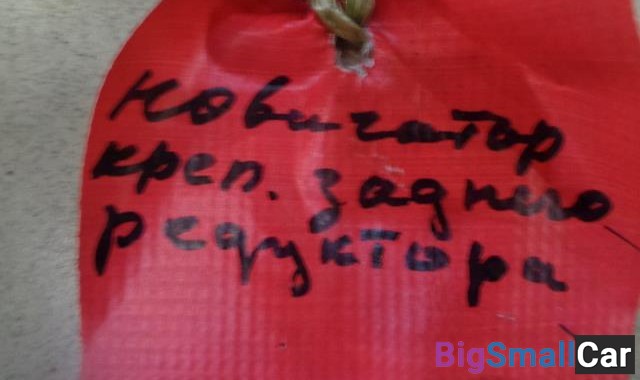 Новигатор
креп. заднего
редуктора
BigSmallCar